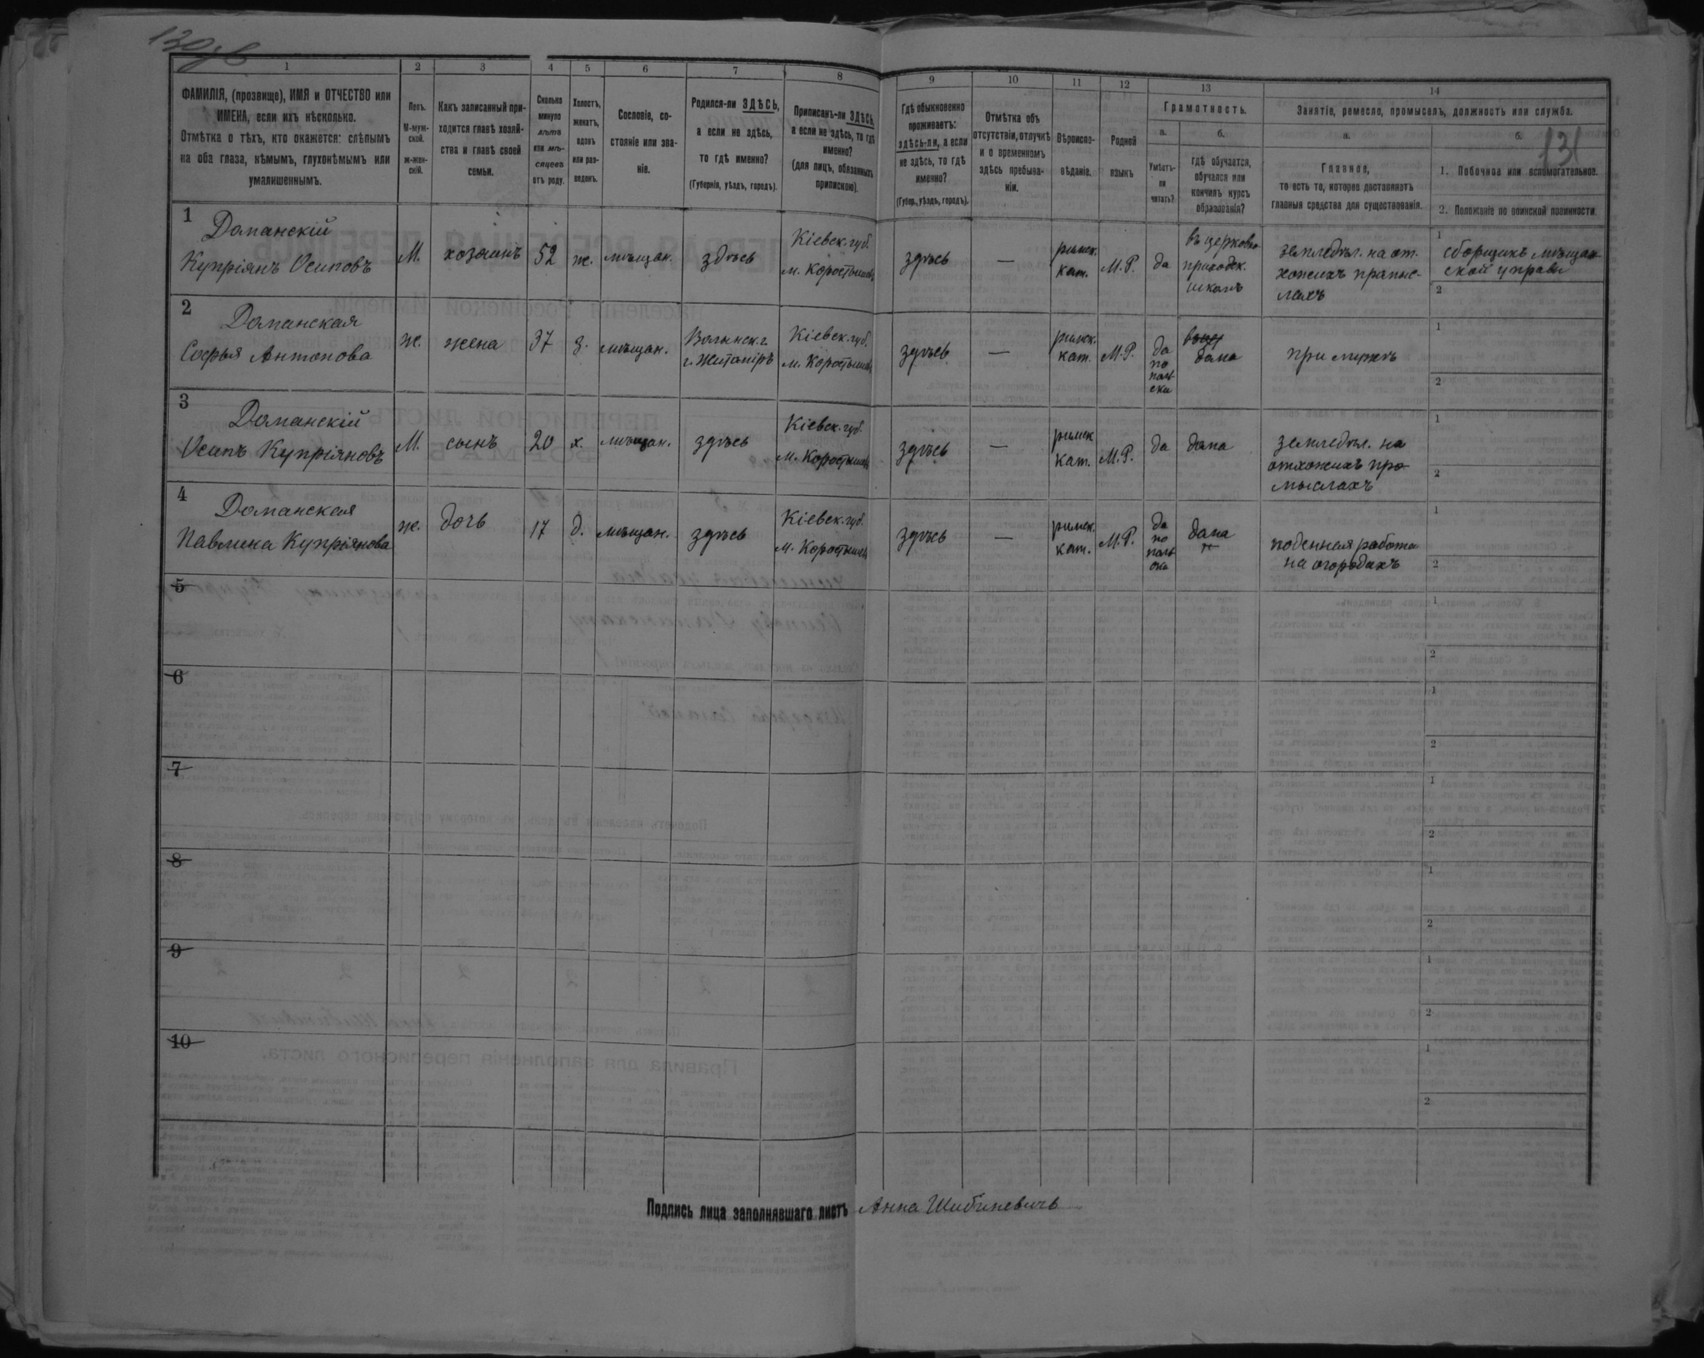 130 об
131
1
2
3
4
5
6
7
8
9
10
11
12
13
14
ФАМИЛІЯ, (прозвище), ИМЯ и ОТЧЕСТВО или
ИМЕНА, если ихъ нѣсколько.
Отмѣтка о тѣхъ, кто окажется: слѣпымъ
на оба глаза, нѣмымъ, глухонѣмымъ или
умалишеннымъ.
Полъ.
М-муж-
ской.
ж-жен-
скій.
Какъ записанный при-
ходится главѣ хозяй-
ства и главѣ своей
семьи.
Сколько
минуло
лѣтъ
или мѣ-
сяцевъ
отъ роду.
Холостъ,
женатъ,
вдовъ
или раз-
веденъ.
Сословіе, со-
стояніе или зва-
ніе.
Родился-ли ЗДѢСЬ,
а если не здѣсь,
то гдѣ именно?
(Губернія, уѣздъ, городъ).
Приписанъ-ли ЗДѢСЬ,
а если не здѣсь, то гдѣ
именно?
(для лицъ, обязанныхъ
припискою).
Гдѣ обыкновенно
проживаетъ:
здѣсь-ли, а если
не здѣсь, то гдѣ
именно?
(Губер., уѣздъ, городъ).
Отмѣтка объ
отсутствіи, отлучкѣ
и о временномъ
здѣсь пребыва-
ніи.
Вѣроиспо-
вѣданіе.
Родной
языкъ
Грамотность.
а.
Умѣетъ-
ли
читать?
б.
гдѣ обучается,
обучался или
кончилъ курсъ
образованія?
Занятіе, ремесло, промыселъ, должность или служба.
а.
Главная,
то есть то, которое доставляетъ
главныя средства для существованія.
б.
1. Побочное или вспомогательное.
2. Положеніе по воинской повинности
1
Доманскій
Купріянъ Осиповъ
М.
хозяинъ
52
ж.
мѣщан.
здѣсь
Кіевск. губ.
м. Коростышевъ
здѣсь
—
римск.
кат.
М.Р.
да
въ церковно
приходск.
школѣ
земледѣл. на от
хожихъ промыс-
лахъ
1
сборщикъ мѣщан
ской управы
2
2
Доманская
Софья Антонова
ж.
жена
37
з.
мѣщан.
Волынск. г.
г. Житоміръ
Кіевск. губ.
м. Коростышевъ
здѣсь
—
римск.
кат.
М.Р.
да
по
поль
ски
дома
при мужѣ
1
2
3
Доманскій
Осипъ Купріяновъ
М.
сынъ
20
х.
мѣщан.
здѣсь
Кіевск. губ.
м. Коростышевъ
здѣсь
—
римск
кат.
М.Р.
да
дома
земледѣл. на
отхожихъ про-
мыслахъ
1
2
4
Доманская
Павлина Купріянова
ж.
дочь
17
д.
мѣщан.
здѣсь
Кіевск. губ.
м. Коростышевъ
здѣсь
—
римск.
кат.
М.Р.
да
по
поль
ски
дома
поденная работа
на огородахъ
1
2
5
1
2
6
1
2
7
1
2
8
1
2
9
1
2
10
1
2
Подпись лица заполнявшаго листъ Анна Шибиневичъ